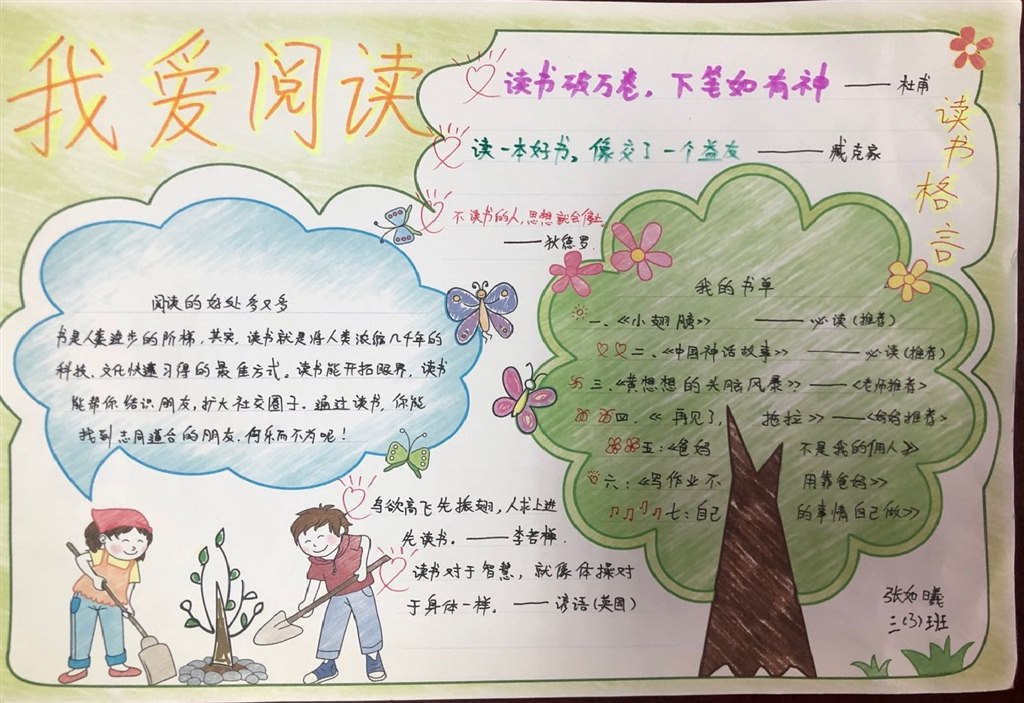 我爱阅读
读书破万卷，下笔如有神 ——杜甫
读一本好书，像交了一个益友 ——臧克家
不读书的人，思想就会停止
——狄德罗
读书格言
阅读的好处多又多
书是人类进步的阶梯，其实，读书就是将人类浓缩几千年的
科技、文化快速习得的最佳方式。读书能开拓眼界，读书
能帮你结识朋友，扩大社交圈子。通过读书，你能
找到志同道合的朋友，何乐而不为呢！
我的书单
一、《小翅膀》 ——必读(推荐)
二、《中国神话故事》 ——必读(推荐)
三、《黄想想的头脑风暴》——<老师推荐>
四、《再见了， 拖拉》——<妈妈推荐>
五：《爸妈 不是我的佣人》
六：《写作业不 用靠爸妈》
七：自己 的事情自己做》
鸟欲高飞先振翅，人求上进
先读书。——李苦禅.
读书对于智慧，就像体操对
于身体一样。——谚语(英国)
张如曦
三(3)班